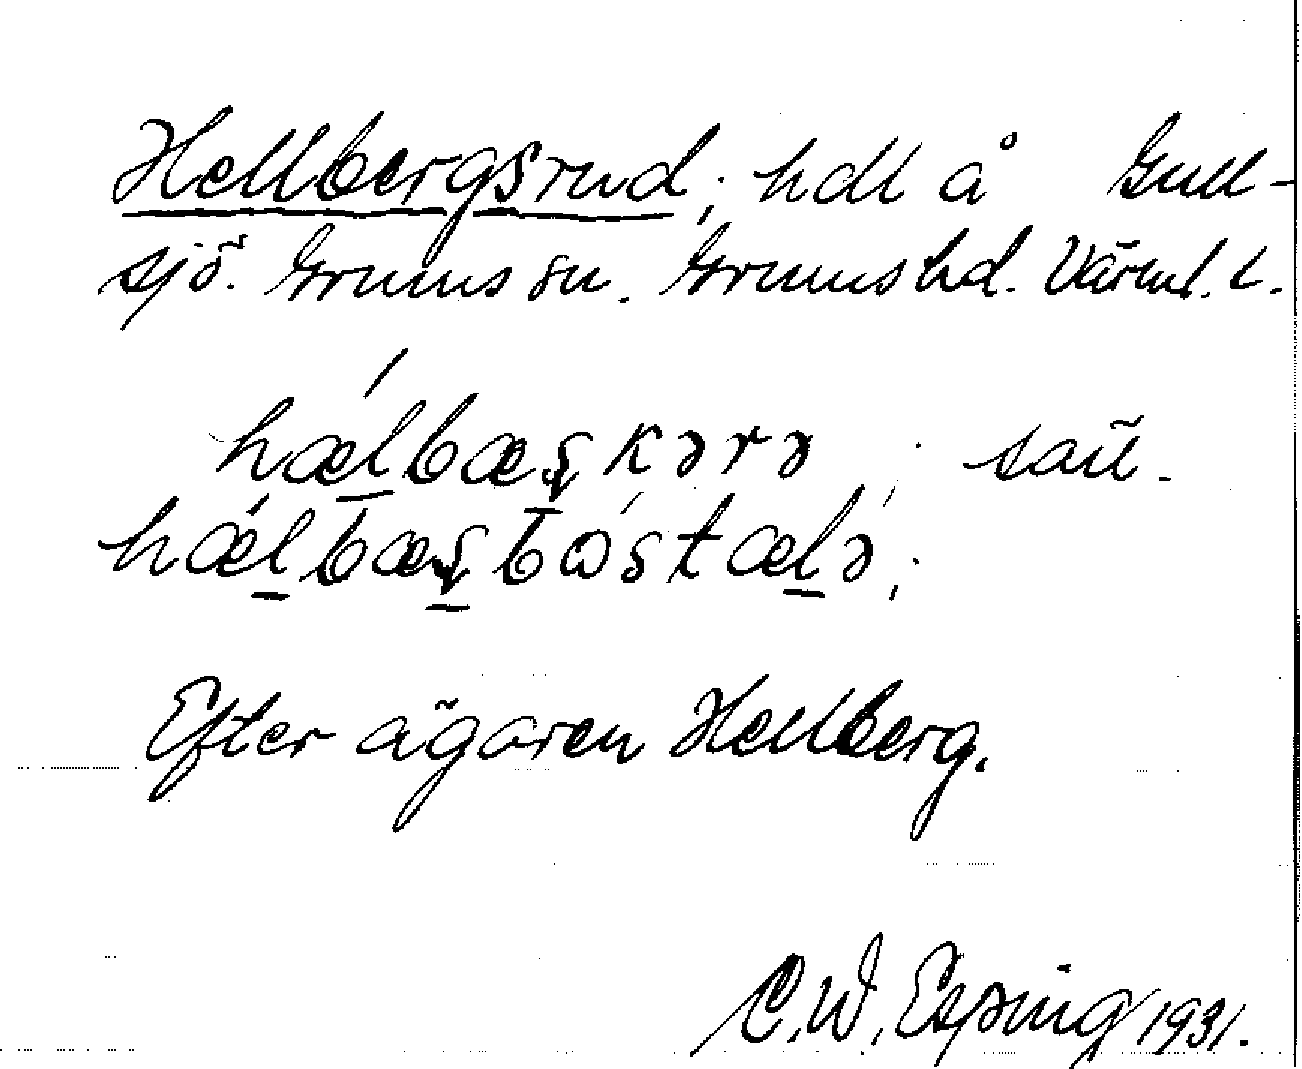 Hellbergsrud; hdl å Gull-
sjö. Grums sn. Grums hd. Värml. l.
hælbæşkərə; samt.
hælbæşbωstælə;
Efter ägaren Hellberg.
C. W. Esping 1931.